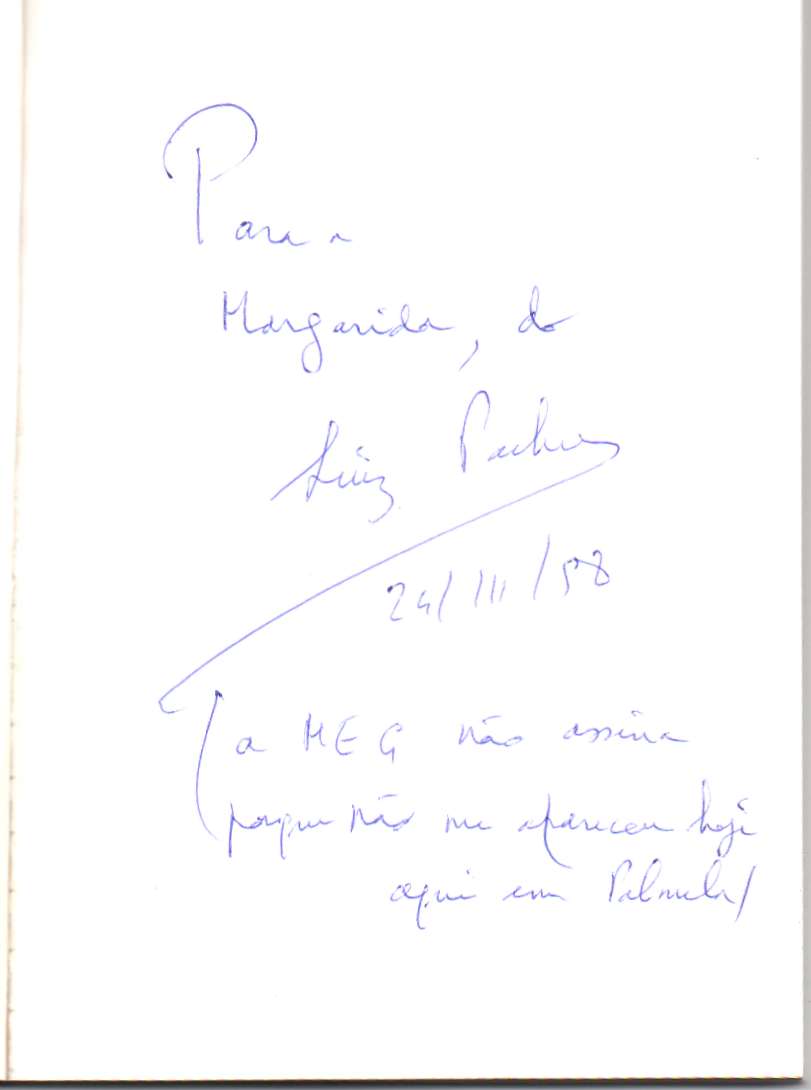 Para a
Margarida, do
Luiz Pacheco
24/III/98
(a MEG não assina
porque não me apareceu hoje
aqui em Palmela)